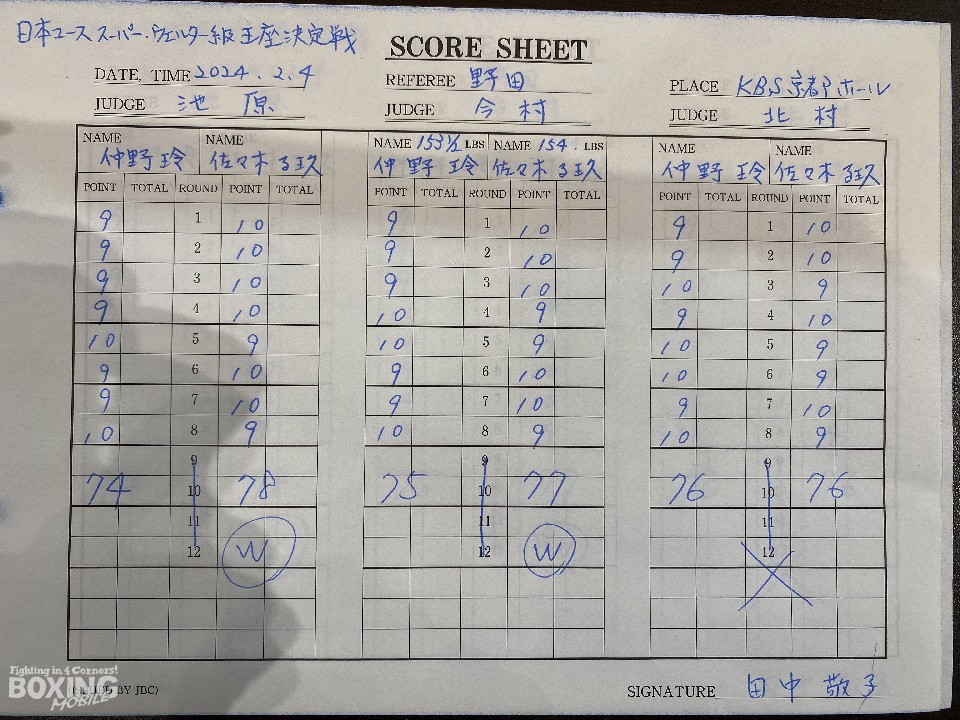 日本ユース スーパー・ウェルター級王座決定戦
SCORE SHEET
DATE, TIME 2024.2.4 REFEREE 野田 PLACE KBS京都ホール
JUDGE 池原 JUDGE 今村 JUDGE 北村
NAME NAME NAME 153½ LBS NAME 154. LBS NAME NAME
仲野 玲 佐々木 る玖 仲野 玲 佐々木 る玖 仲野 玲 佐々木 る玖
POINT TOTAL ROUND POINT TOTAL POINT TOTAL ROUND POINT TOTAL POINT TOTAL ROUND POINT TOTAL
9 1 10 9 1 10 9 1 10
9 2 10 9 2 10 9 2 10
9 3 10 9 3 10 10 3 9
9 4 10 10 4 9 9 4 10
10 5 9 10 5 9 10 5 9
9 6 10 9 6 10 10 6 9
9 7 10 9 7 10 9 7 10
10 8 9 10 8 9 10 8 9
9 9 9
74 10 78 75 10 77 76 10 76
11 11 11
12 W 12 W 12
Fighting in 4 Corners!
BOXING
MOBILE
(ISSUED BY JBC) SIGNATURE 田中 敬子